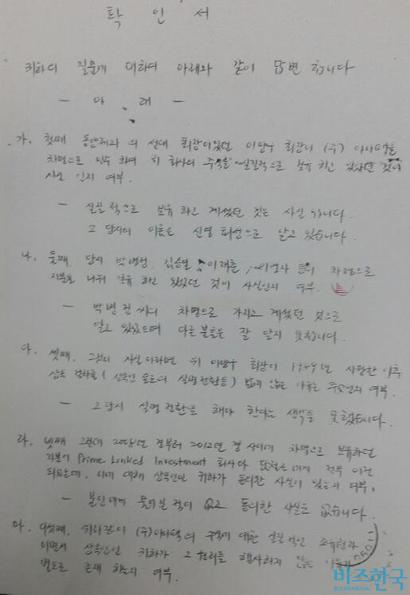 확 인 서
귀하의 질문에 대하여 아래와 같이 답변 합니다
- 아 래 -
가. 첫째 동안제과 의 선대 회장이었던 이 회장이 (주)
차명으로 인수 하여 위 회사의 주식을 실질적으로 보유 하고 있었던 것이
사실 인지 여부.
- 실질적으로 보유 하고 계셨던 것은 사실 입니다.
그 당시의 이름은 신영 화성으로 알고 있습니다.
나. 둘째 당시 박병정, 김승열, 이재훈, 등의 차명으로
지분을 나눠 보유 하고 있었던 것이 사실인지 여부.
- 박병정 씨의 차명으로 가지고 계셨던 것으로
알고 있었으며 다른분들은 잘 알지 못합니다.
다. 셋째, 그것이 사실이라면 위 회장이 1989년 사망한 이후
상속 절차를 (상속인 앞으로 실명전환등) 밟지 않은 이유는 무엇인지 여부.
- 그 당시 실명전환을 해야 한다는 생각을 못했습니다.
라. 넷째 그런데 년경부터 2012년경 사이에 차명으로 보유하던
지분이 Prime Linked Investment 회사와 에게 전부 이전
되었는데, 이에 대해 상속인인 귀하가 동의한 사실이 있는지 여부.
- 본인에게 동의를 구한 적이 없고 동의한 사실도 없습니다.
마. 다섯째, (주) 의 주식에 대한 실질적인 소유권자
이면서 상속인인 귀하가 그 권리를 행사하지 않은 이유가
별도로 존재 하는지 여부.
비즈한국